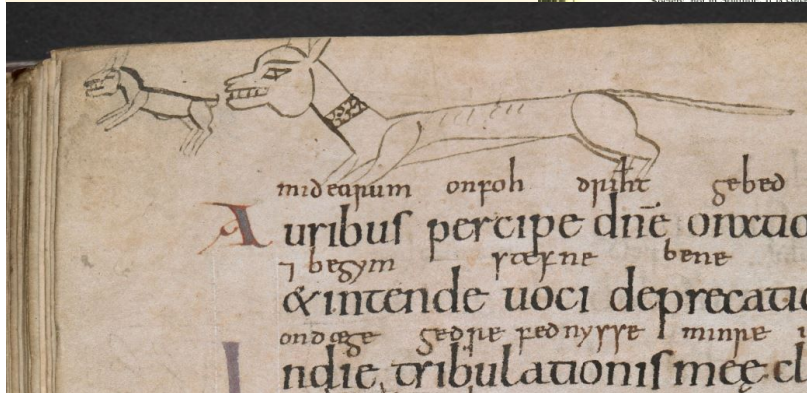 midearum onfoh driħt gebed
Auribus percipe dn̄e oratio
⁊ begym stefne bene
&intende uoci deprecatio
ondæge gedrefednysse minre
Indie tribulationis meę cl